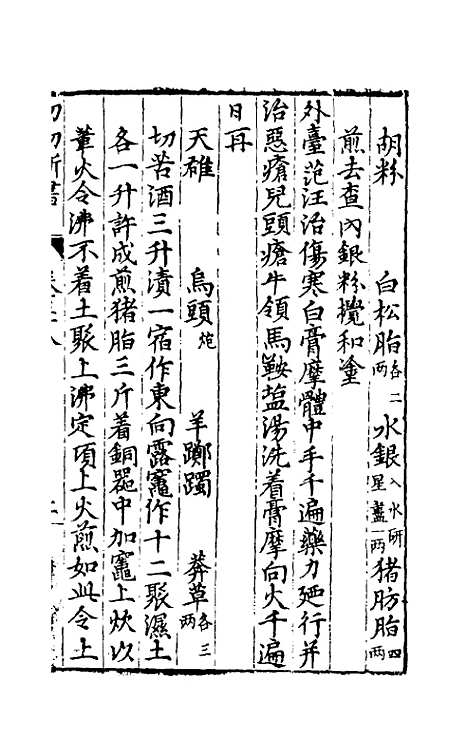 胡粉　白松脂各二两　水銀入水研星盡一两　猪肪脂四两
煎去查内銀粉攪和塗
外臺范汪治傷寒白膏摩體中手千遍藥力廼行并
治惡瘡兒頭瘡牛領馬鞍盐湯洗着膏摩向火千遍
日再
天雄　烏頭炮　羊躑躅　莽草各三两
切苦酒三升漬一宿作東向露竈作十二聚濕土
各一升許成煎猪脂三斤着銅器中加竈上炊以
葦火令沸不着土聚上沸定頃上火煎如此令上